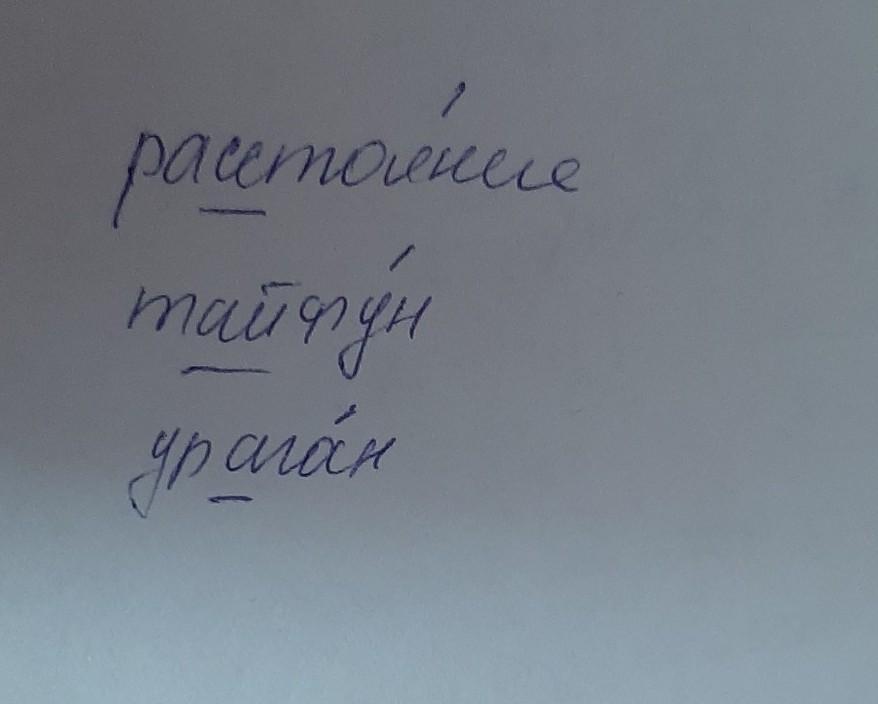 расстоя́ние
тайфу́н
урага́н